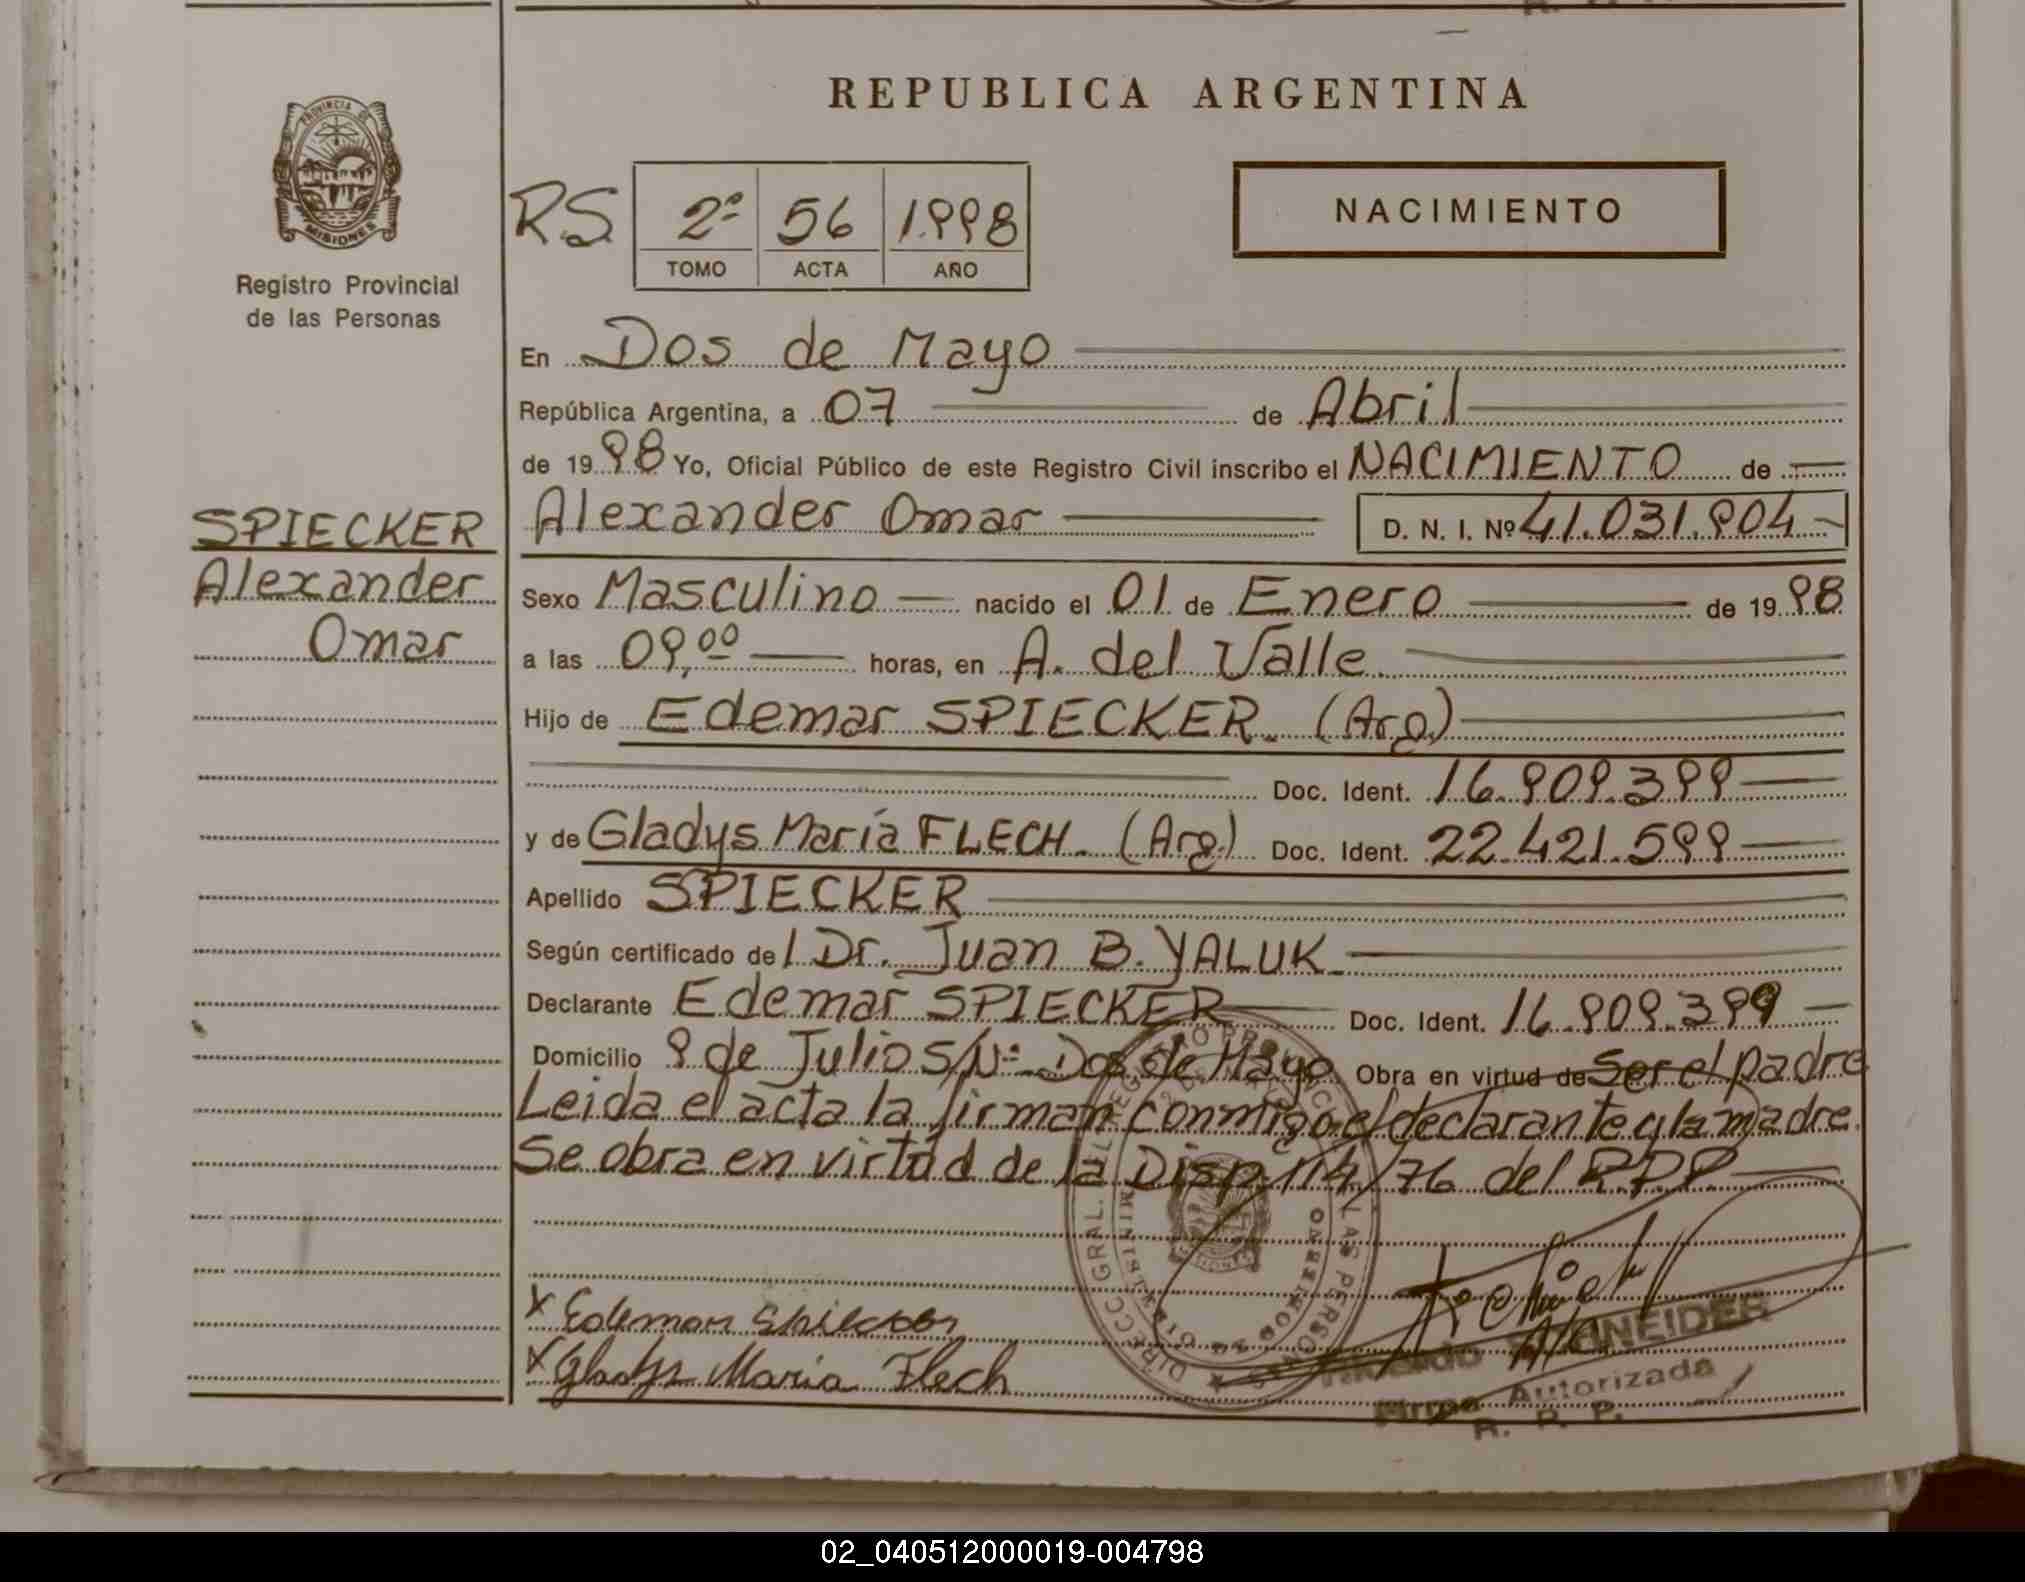 REPUBLICA ARGENTINA
PROVINCIA DE
MISIONES
Registro Provincial
de las Personas
R.S. 2º 56 1998
TOMO ACTA AÑO
NACIMIENTO
En Dos de Mayo
República Argentina, a 07 de Abril
de 1998 Yo, Oficial Público de este Registro Civil inscribo el NACIMIENTO de
SPIECKER
Alexander
Omar
Alexander Omar D. N. I. Nº 41.031.904.-
Sexo Masculino nacido el 01 de Enero de 1998
a las 09,00 horas, en A. del Valle
Hijo de Edemar SPIECKER. (Arg.)
Doc. Ident. 16.909.399
y de Gladys María FLECH. (Arg.) Doc. Ident. 22.421.599
Apellido SPIECKER
Según certificado del Dr. Juan B. YALUK.
Declarante Edemar SPIECKER Doc. Ident. 16.909.399
Domicilio 9 de Julio S/Nº Dos de Mayo Obra en virtud de Ser el padre
Leida el acta la firman conmigo el declarante y la madre.
Se obra en virtud de la Disp. 114/76 del R.P.P.
x Edemar Spiecker
x Gladys María Flech
Firma Autorizada
R. P. P.
02_040512000019-004798